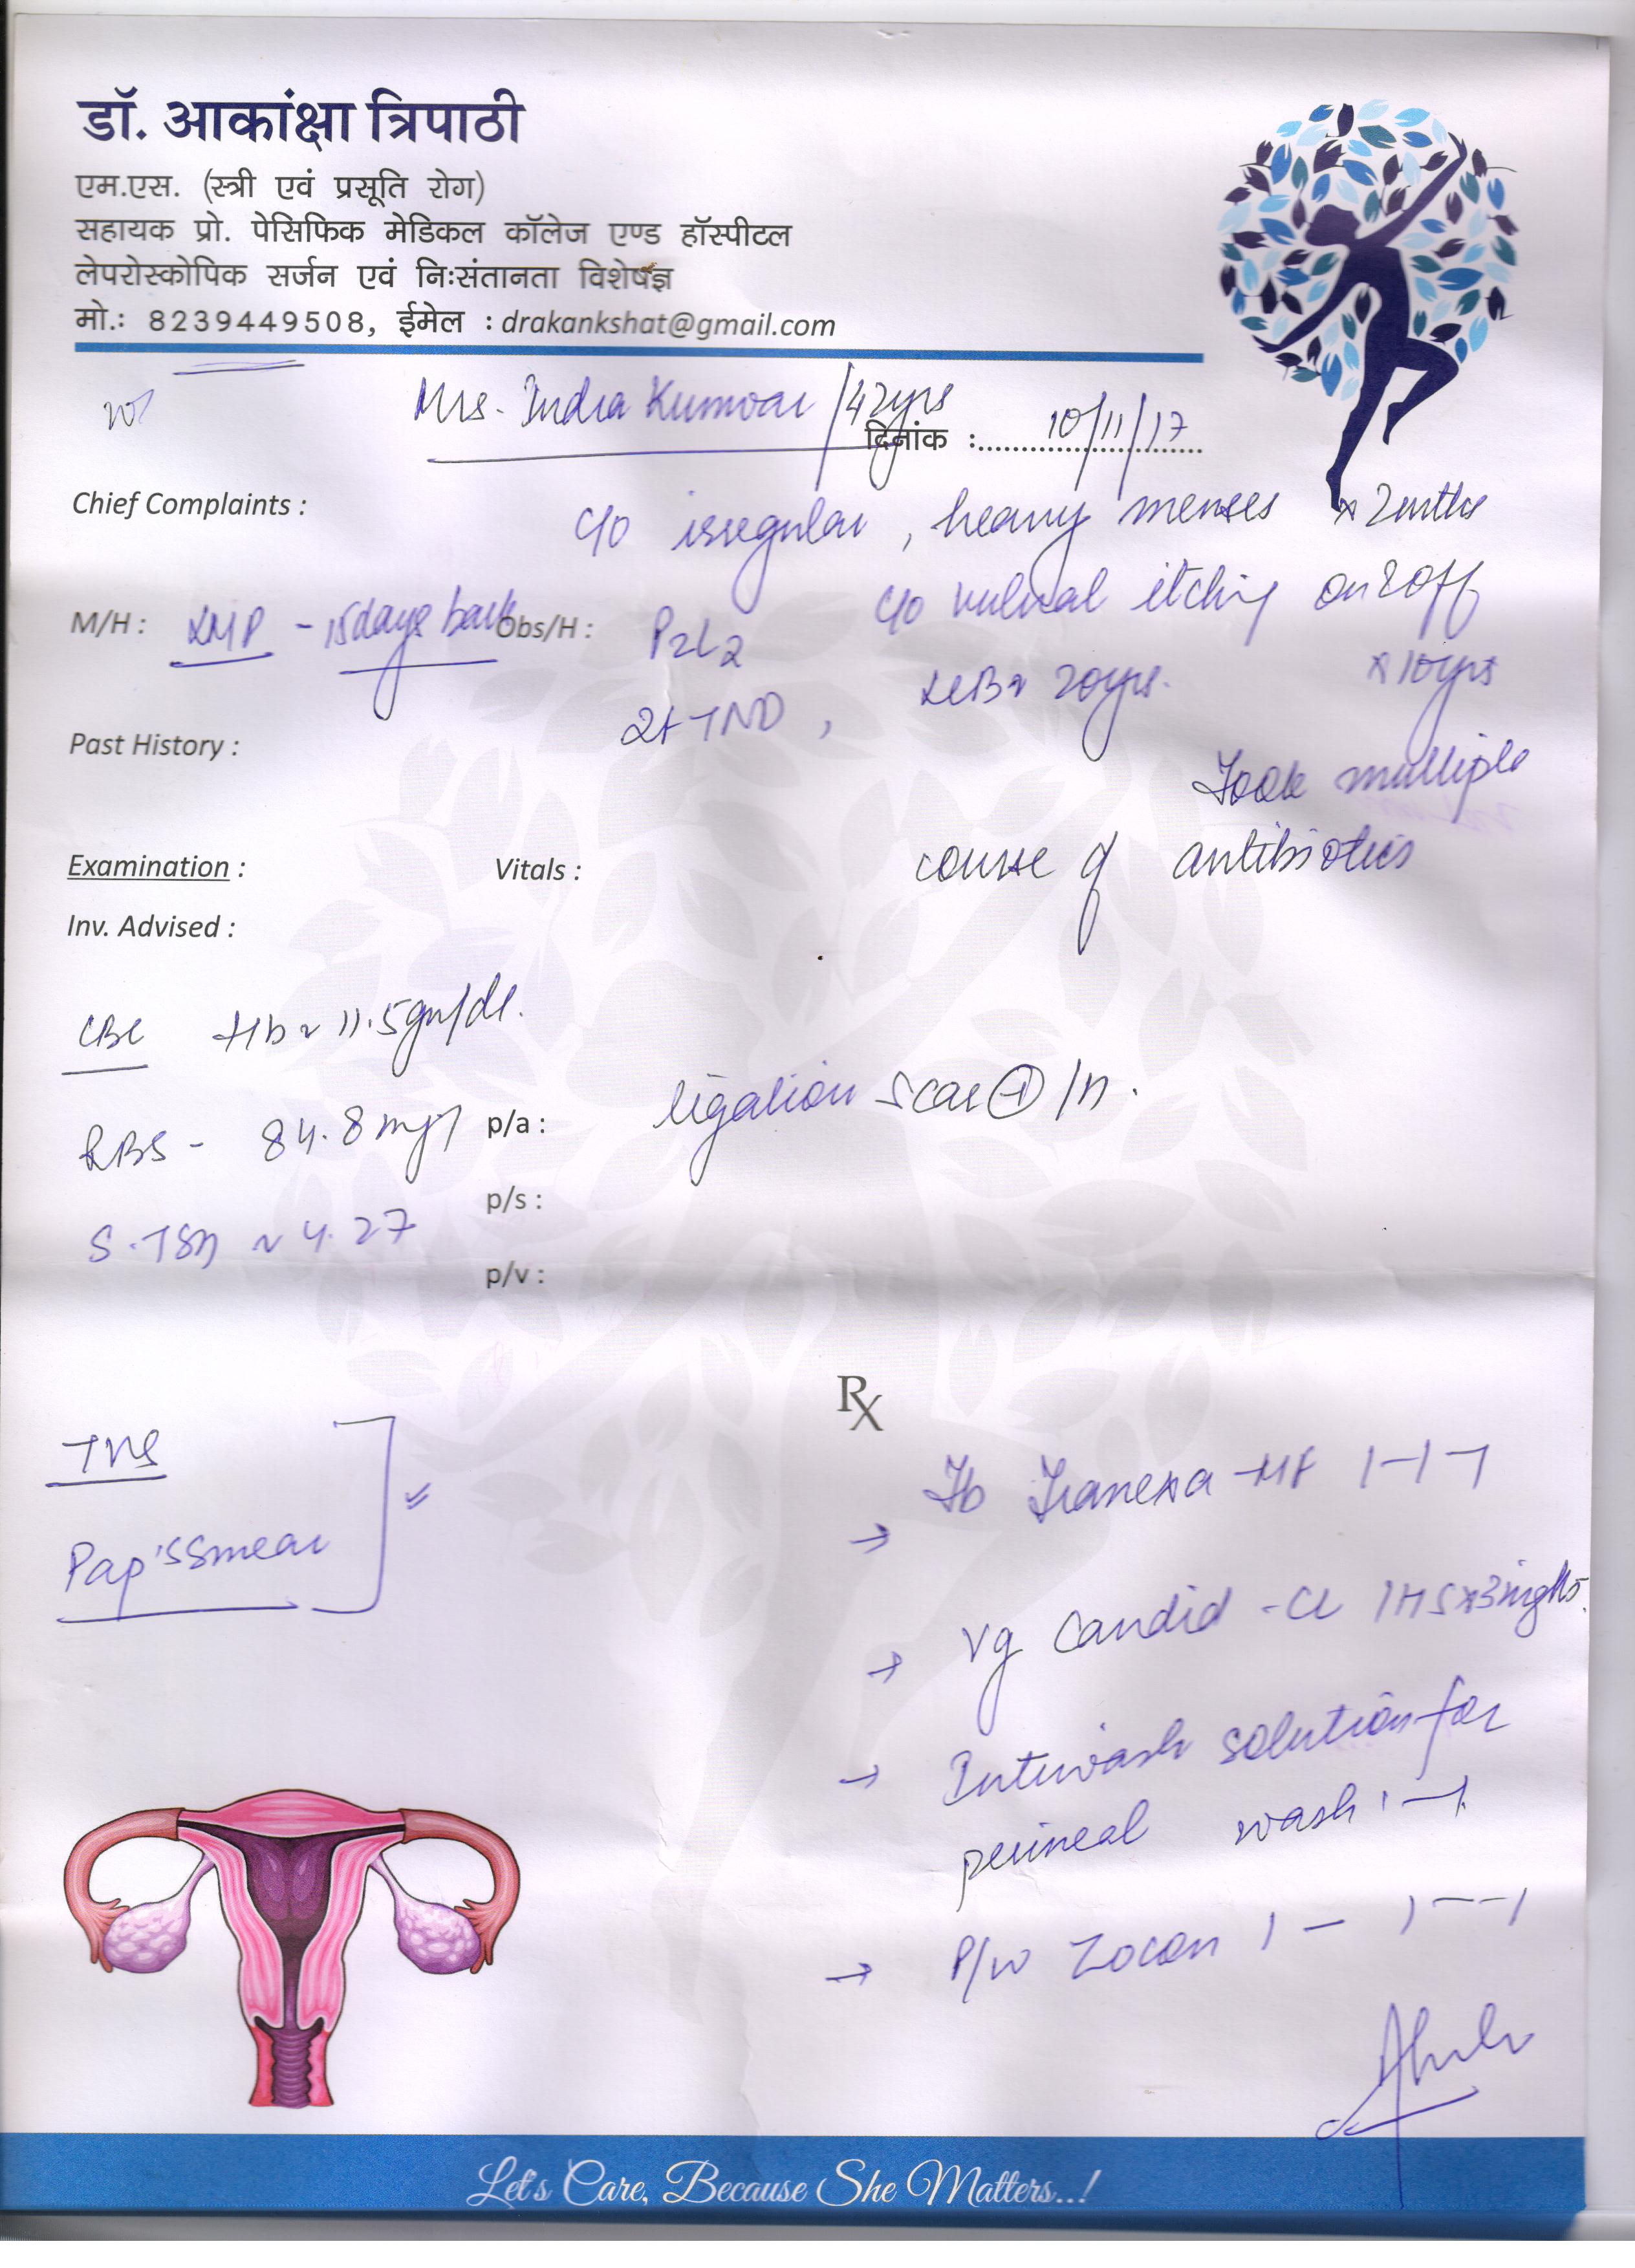 डॉ. आकांक्षा त्रिपाठी
एम.एस. (स्त्री एवं प्रसूति रोग)
सहायक प्रो. पेसिफिक मेडिकल कॉलेज एण्ड हॉस्पीटल
लेपरोस्कोपिक सर्जन एवं निःसंतानता विशेषज्ञ
मो.: 8239449508, ईमेल : drakankshat@gmail.com
Mrs. Indra Kumvar /42yrs
दिनांक : 10/11/17
Chief Complaints : c/o irregular, heavy menses x 2mths
c/o vulval itching on & off
x 10yrs
M/H : LMP - 15days back Obs/H : P2L2
2FTND, LCB ~ 20yrs.
Past History :
Took multiple
course of antibiotics
Examination : Vitals :
Inv. Advised :
CBC Hb ~ 11.5gm/dl.
RBS - 84.8mg
p/a : ligation scar ⊕ /n.
p/s :
S.TSH ~ 4.27
p/v :
Rx
TVS
Pap's Smear
→ Tb Tranexa-MF 1-1-1
→ Vg Candid-CL 1HS x 3nights.
→ Intiwash solution for
perineal wash 1-1
→ Zocon 1 - 1--1
Let's Care, Because She Matters...!